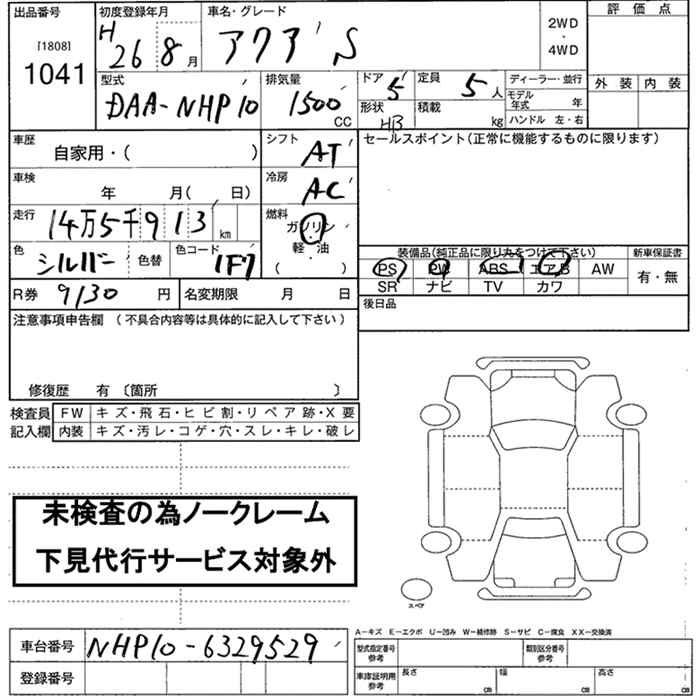 出品番号 初度登録年月 車名・グレード 評価点
[1808] H 26 8 月 アクア S 2WD ・ 4WD
1041 外装 内装
型式 排気量 ドア 定員 ディーラー・並行
DAA-NHP10 1500 CC 5 5 人 モデル年式 年
形状 HB 積載 kg ハンドル 左・右
車歴 シフト セールスポイント(正常に機能するものに限ります)
自家用・( ) AT
車検 冷房
年 月( 日) AC
走行 燃料
14万5千913 km ガソリン・軽・油
色 色コード 装備品(純正品に限り丸をつけて下さい) 新車保証書
シルバー 色替 1F7 ( ) PS PW ABS エアB AW 有・無
SR ナビ TV カワ
R券 9130 円 名変期限 月 日 後日品
注意事項申告欄 (不具合内容等は具体的に記入して下さい)
修復歴 有 〔箇所 〕
検査員 FW キズ・飛石・ヒビ割・リペア跡・X要
記入欄 内装 キズ・汚レ・コゲ・穴・スレ・キレ・破レ
未検査の為ノークレーム
下見代行サービス対象外
スペア
A-キズ E-エクボ U-凹み W-補修跡 S-サビ C-腐食 XX-交換済
車台番号 NHP10-6329529 型式指定番号 参考 類別区分番号 参考
登録番号 車庫証明用 参考 長さ cm 幅 cm 高さ cm